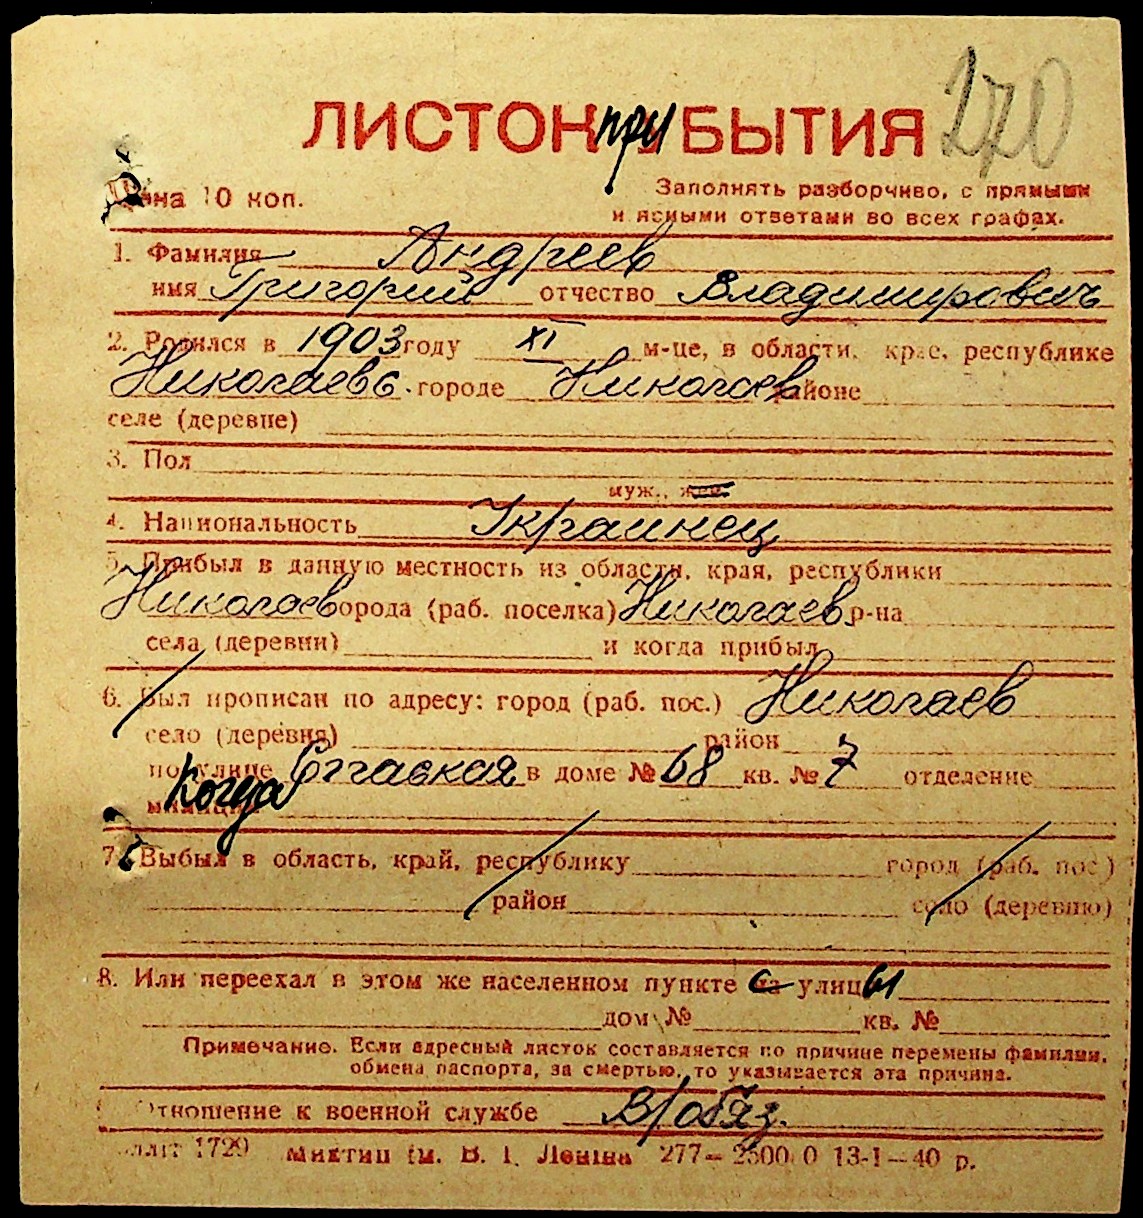 270
ЛИСТОК при БЫТИЯ
Цена 10 коп.
Заполнять разборчиво, с прямыми
и ясными ответами во всех графах.
1. Фамилия Андреев
имя Григорий отчество Владимирович
2. Родился в 1903 году XI м-це, в области, крае, республике
Николаевс. городе Николаев районе
селе (деревне)
3. Пол
муж., жен.
4. Национальность Украинец
5. Прибыл в данную местность из области, края, республики
Николаев города (раб. поселка) Николаев р-на
села (деревни) и когда прибыл
6. Был прописан по адресу: город (раб. пос.) Николаев
село (деревня) район
по улице в доме № 68 кв. № 7 отделение
Когда милиции
7. Выбыл в область, край, республику город (раб. пос.)
район село (деревню)
8. Или переехал в этом же населенном пункте с на улицы
дом № кв. №
Примечание. Если адресный листок составляется по причине перемены фамилии,
обмена паспорта, за смертью, то указывается эта причина.
Отношение к военной службе В/обяз.
1729 Миктип ім. В. І. Леніна 277— 13-I—40 р.